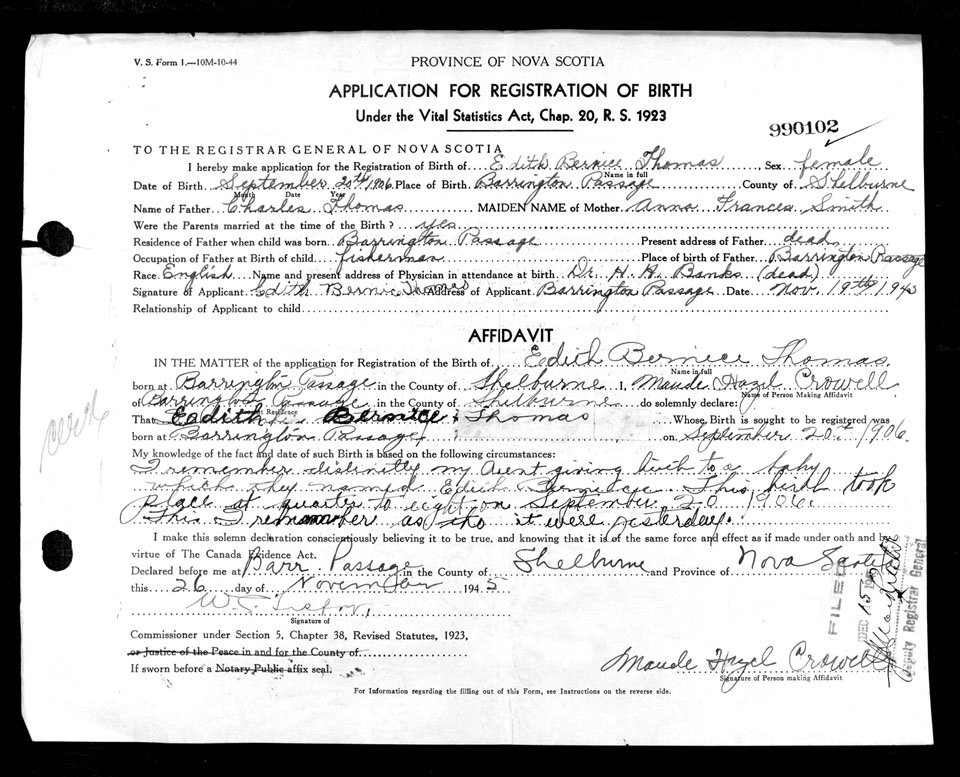 V. S. Form 1.—10M-10-44
PROVINCE OF NOVA SCOTIA
APPLICATION FOR REGISTRATION OF BIRTH
Under the Vital Statistics Act, Chap. 20, R. S. 1923
990102
TO THE REGISTRAR GENERAL OF NOVA SCOTIA
I hereby make application for the Registration of Birth of Edith Bernice Thomas Sex female
Name in full
Date of Birth September 20th 1906 Place of Birth Barrington Passage County of Shelburne
Month Date Year
Name of Father Charles Thomas MAIDEN NAME of Mother Anna Frances Smith
Were the Parents married at the time of the Birth? yes
Residence of Father when child was born Barrington Passage Present address of Father dead
Occupation of Father at Birth of child fisherman Place of birth of Father Barrington Passage
Race English Name and present address of Physician in attendance at birth Dr. H. H. Banks (dead)
Signature of Applicant Edith Bernice Thomas Address of Applicant Barrington Passage Date Nov. 19th 194
Relationship of Applicant to child
AFFIDAVIT
IN THE MATTER of the application for Registration of the Birth of Edith Bernice Thomas
Name in full
born at Barrington Passage in the County of Shelburne I, Maude Hazel Crowell
Name of Person Making Affidavit
of Barrington Passage Shelburne do solemnly declare:
Present Residence
That Edith Bernice Thomas Whose Birth is sought to be registered was
born at Barrington Passage on September 20th 1906
My knowledge of the fact and date of such Birth is based on the following circumstances:
I remember distinctly my Aunt giving birth to a baby
which they named Edith Bernice. This birth took
place at quarter to eight on September 20 1906.
This I remember as tho it were yesterday.
I make this solemn declaration conscientiously believing it to be true, and knowing that it is of the same force and effect as if made under oath and by
virtue of The Canada Evidence Act.
Declared before me at Barr. Passage in the County of Shelburne and Province of Nova Scotia
this 26 day of November 1945
Signature of
Commissioner under Section 5, Chapter 38, Revised Statutes, 1923,
or Justice of the Peace in and for the County of
If sworn before a Notary Public affix seal.
Maude Hazel Crowell
Signature of Person making Affidavit
FILED
DEC 15
Deputy Registrar General
For Information regarding the filling out of this Form, see Instructions on the reverse side.